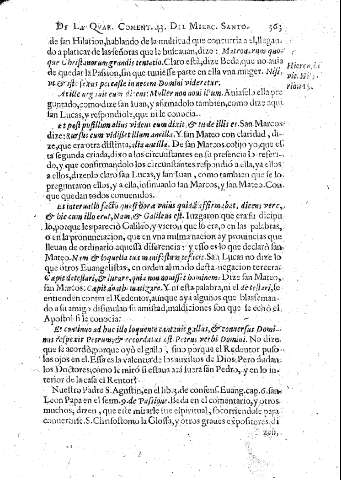 DE LA QVAR. COMENT. 33. DEL MIERC. SANTO. 563
de san Hilarion, hablando de la multitud que concurria a el, llegan-
do a platicar de las señoras que le buscauan, dize: Matronarum quo-
que Christianarum grandis tentatio. Claro està, dize Beda, que no auia
de quedar la Passiõ, sin que tuuiesse parte en ella vna muger. Nisi,
vt & ille sexus peccasse in necem Domini videretur.
At ille negauit eum dicens: Mulier non noui illum. Auiafelo ella pre
guntado, como dize san Iuan, y afirmadolo tambien, como dize aqui
san Lucas, y respondiole, que ni le conocia.
Et post pusillum alius videns eum dixit, & tu de illis es. San Marcos
dize: Rursus cum vidisset illum ancilla. Y san Mateo con claridad, di-
ze, que era otra distinta, alia ancilla. De san Mateo colijo yo, que es-
ta segunda criada, dixo a los circunstantes en su presencia lo referi-
do, y que confirmandolo los circunstantes respondio a ella, ya ellos
a ellos, dizenlo claro san Lucas, y san Iuan, como tambien que se lo
preguntaron ellos, y a ella, insinuanlo san Marcos, y san Mateo. Con
que quedan todos conuenidos.
Et interuallo facto quasi horæ vnius quidã affirmabat, dicens, vere,
& hic cum illo erat, Nam, & Galilæus est. Iuzgaron que era su dicipu
lo, porque les pareciò Galileo, y vieron que lo era, o en las palabras,
o en la pronunciacion, que en vna misma nacion ay prouincias que
lleuan de ordinario aquessa diferencia: y esso es lo que declarò san
Mateo. Nam & loquela tua manifestum te facit. San Lucas no dize lo
que otros Euangelistas, en orden al modo desta negacion tercera:
Cœpit detestari, & iurare, quia non nouisset hominem. Dize san Mateo,
san Marcos: Cœpit anathematizare. Y ni esta palabra, ni el detestari, lo
entienden contra el Redentor, aunque aya algunos que blasfeman-
do a su amigo dissimulan su amistad, maldiciones son que se echò el
Apostol si le conocia.
Et continuo adhuc illo loquente cantauit gallus, & conuersus Domi-
nus respexit Petrum, & recordatus est Petrus verbi Domini. No dize
que se acordò, porque oyò el gallo, sino porque el Redentor puso
los ojos en el. Essa es la valentia de los auxilios de Dios. Pero darlan
los Doctores, como le mirò si estaua acà fuera san Pedro, y en lo in-
terior de la casa el Rentor?
Nuestro Padre S. Agustin, en el lib. 3. de consens. Euang. cap. 6. san
Leon Papa en el serm. 9. de Passione. Beda en el comentario, y otros
muchos, dizen, que este mirarle fue espiritual, socorriendole para
S. Chrisostomo la Glossa, y otros graues expositores di-
zen,